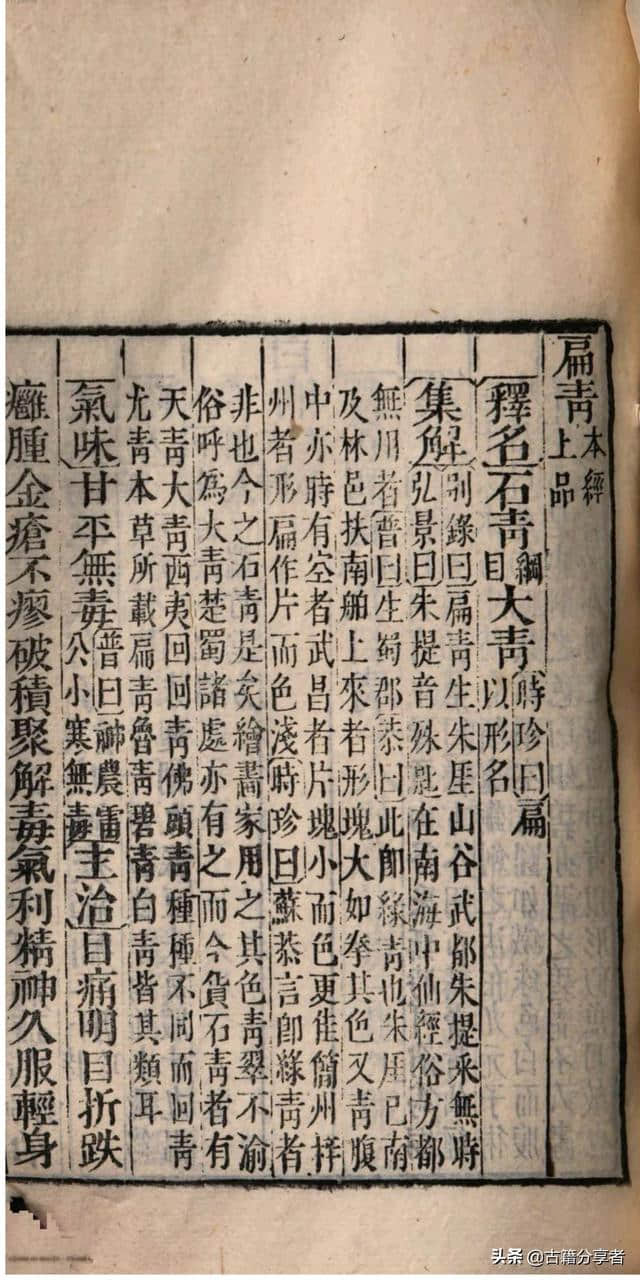 扁青本經
上品
釋名石青綱
目大青時珍曰扁
以形名
集解别錄曰扁青生朱厓山谷武都朱提采無時
弘景曰朱提音殊匙在南海中仙經俗方都
無川者普曰生蜀郡恭曰此即綠青也朱厓已南
及林邑扶南舶上來者形塊大如拳其色又青腹
中亦時有空者武昌者片塊小而色更佳簡州梓
州者形扁作片而色淺時珍曰蘇恭言即綠青者
非也今之石青是矣繪畫家用之其色青翠不渝
俗呼爲大青楚蜀諸處亦有之而今貨石青者有
天青大青西夷回回青佛頭青種種不同而回青
尤青本草所載扁青魯青碧青白青皆其類耳
氣味甘平無毒普曰神農雷
公小寒無毒主治目痛明目折跌
癰腫金瘡不瘳破積聚解毒氣利精神久服輕身
头条 @古籍分享者